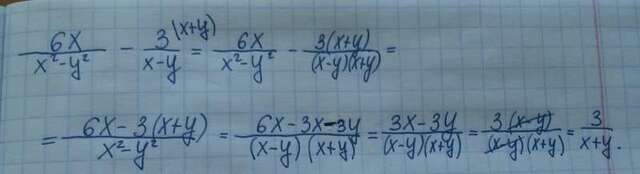 6x/(x²-y²) - 3/(x-y) (x+y) = 6x/(x²-y²) - 3(x+y)/((x-y)(x+y)) =
= (6x-3(x+y))/(x²-y²) = (6x-3x-3y)/((x-y)(x+y)) = (3x-3y)/((x-y)(x+y)) = 3(x-y)/((x-y)(x+y)) = 3/(x+y).